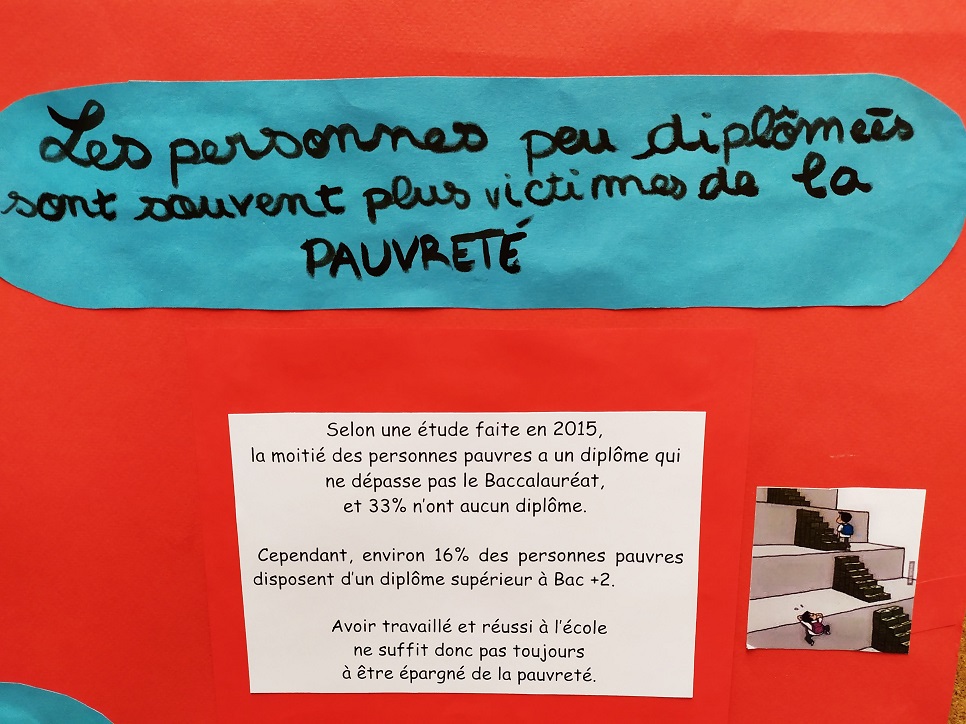 Les personnes peu diplômeés
sont souvent plus victimes de la
PAUVRETÉ
Selon une étude faite en 2015,
la moitié des personnes pauvres a un diplôme qui
ne dépasse pas le Baccalauréat,
et 33% n'ont aucun diplôme.
Cependant, environ 16% des personnes pauvres
disposent d'un diplôme supérieur à Bac +2.
Avoir travaillé et réussi à l'école
ne suffit donc pas toujours
à être épargné de la pauvreté.